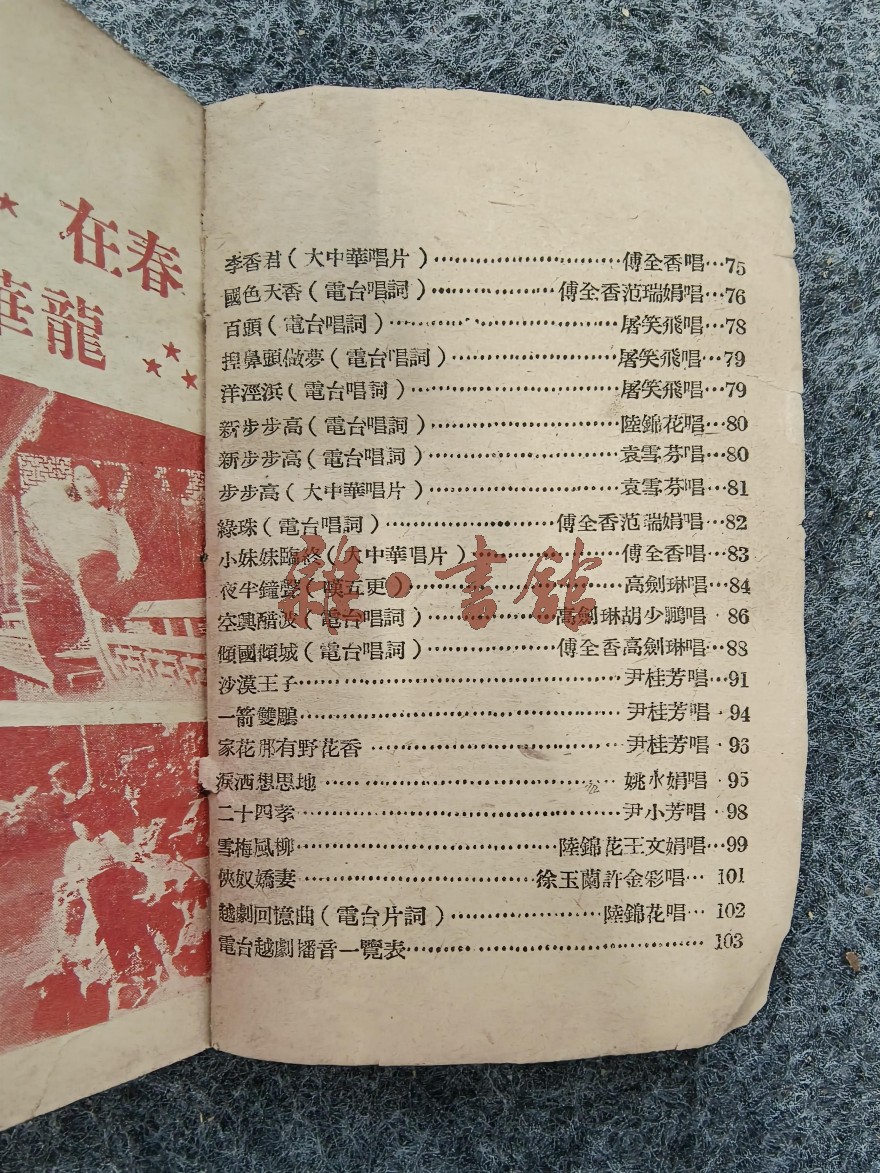 在春
華龍
李香君(大中華唱片)…………………傅全香唱…75
國色天香(電台唱詞)……………傅全香范瑞娟唱…76
百頭(電台唱詞)…………………………屠笑飛唱…78
揑鼻頭做夢(電台唱詞)…………………屠笑飛唱…79
洋涇浜(電台唱詞)………………………屠笑飛唱…79
新步步高(電台唱詞)……………………陸錦花唱…80
新步步高(電台唱詞)……………………袁雪芬唱…80
步步高(大中華唱片)……………………袁雪芬唱…81
綠珠(電台唱詞)…………………傅全香范瑞娟唱…82
小妹妹臨終(大中華唱片)………………傅全香唱…83
夜半鐘聲(嘆五更)………………………高劍琳唱…84
空興醋波(電台唱詞)……………高劍琳胡少鵬唱…86
傾國傾城(電台唱詞)……………傅全香高劍琳唱…88
沙漠王子…………………………………尹桂芳唱…91
一箭雙鵰…………………………………尹桂芳唱…94
家花那有野花香…………………………尹桂芳唱…93
淚洒想思地………………………………姚水娟唱…95
二十四孝…………………………………尹小芳唱…98
雪梅風柳…………………………陸錦花王文娟唱…99
俠奴嬌妻…………………………徐玉蘭許金彩唱…101
越劇回憶曲(電台片詞)…………………陸錦花唱…102
電台越劇播音一覽表……………………………………103
雜·書館